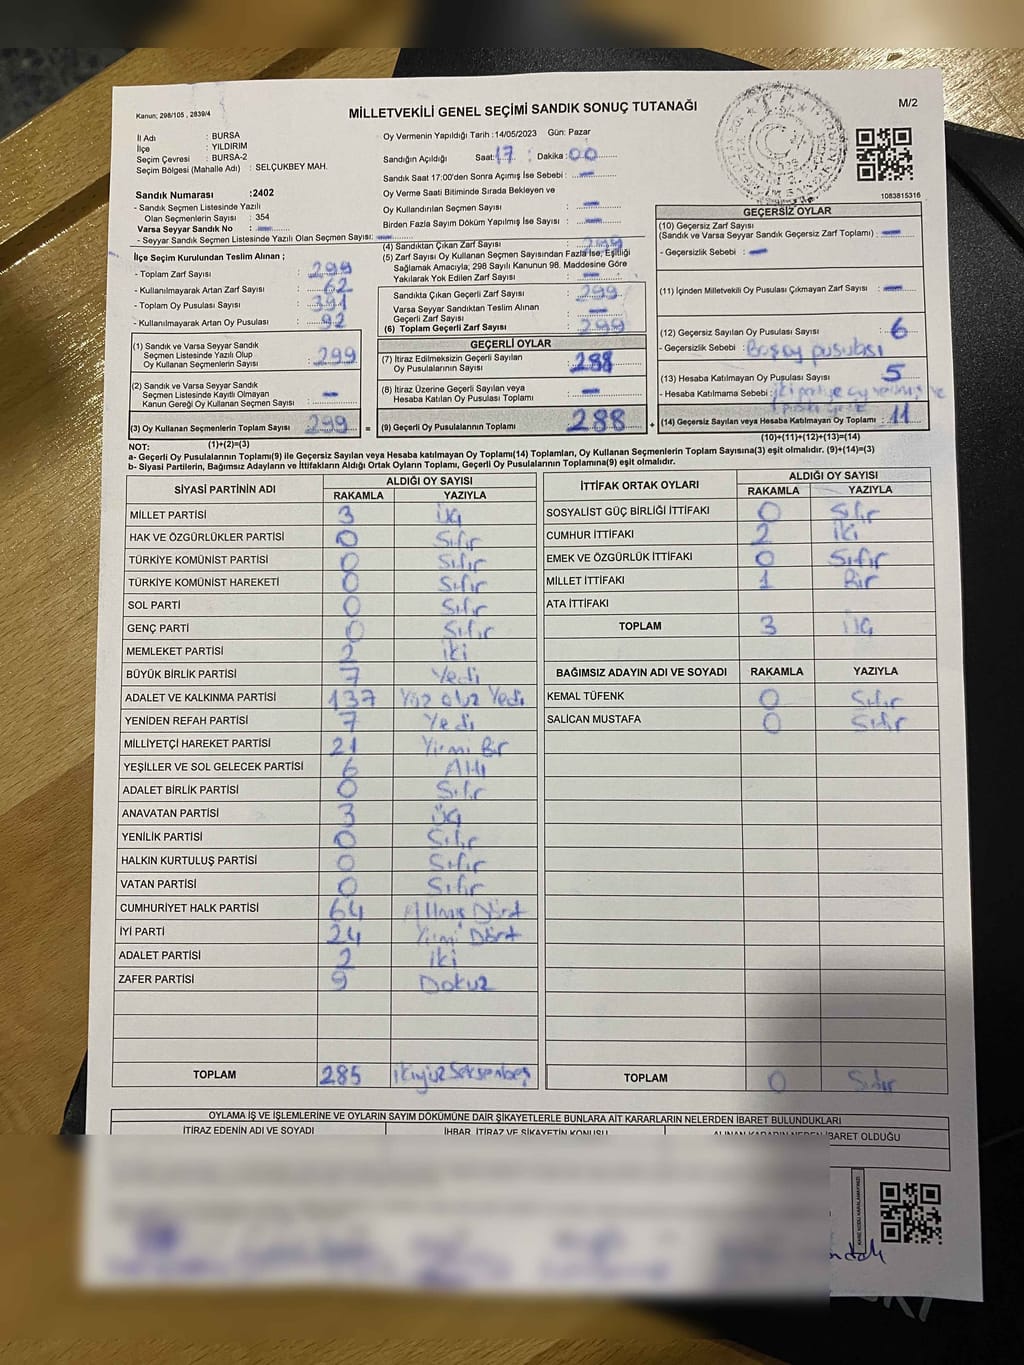 Kanun; 298/105 , 2839/4
MİLLETVEKİLİ GENEL SEÇİMİ SANDIK SONUÇ TUTANAĞI
M/2
İl Adı : BURSA
İlçe : YILDIRIM
Seçim Çevresi : BURSA-2
Seçim Bölgesi (Mahalle Adı) : SELÇUKBEY MAH.
Sandık Numarası :2402
- Sandık Seçmen Listesinde Yazılı
Olan Seçmenlerin Sayısı : 354
Varsa Seyyar Sandık No : —
- Seyyar Sandık Seçmen Listesinde Yazılı Olan Seçmen Sayısı: —
Oy Vermenin Yapıldığı Tarih :14/05/2023 Gün: Pazar
Sandığın Açıldığı Saat: 17 : Dakika : 00
Sandık Saat 17:00'den Sonra Açımış İse Sebebi : —
Oy Verme Saati Bitiminde Sırada Bekleyen ve
Oy Kullandırılan Seçmen Sayısı : —
Birden Fazla Sayım Döküm Yapılmış İse Sayısı : —
1083815316
İlçe Seçim Kurulundan Teslim Alınan ;
- Toplam Zarf Sayısı : 299
- Kullanılmayarak Artan Zarf Sayısı : 62
- Toplam Oy Pusulası Sayısı : 391
- Kullanılmayarak Artan Oy Pusulası : 92
(1) Sandık ve Varsa Seyyar Sandık
Seçmen Listesinde Yazılı Olup
Oy Kullanan Seçmenlerin Sayısı : 299
(2) Sandık ve Varsa Seyyar Sandık
Seçmen Listesinde Kayıtlı Olmayan
Kanun Gereği Oy Kullanan Seçmen Sayısı : —
(3) Oy Kullanan Seçmenlerin Toplam Sayısı : 299 =
(1)+(2)=(3)
(4) Sandıktan Çıkan Zarf Sayısı : 299
(5) Zarf Sayısı Oy Kullanan Seçmen Sayısından Fazla İse, Eşitliği
Sağlamak Amacıyla; 298 Sayılı Kanunun 98. Maddesine Göre
Yakılarak Yok Edilen Zarf Sayısı : —
Sandıkta Çıkan Geçerli Zarf Sayısı : 299
Varsa Seyyar Sandıktan Teslim Alınan
Geçerli Zarf Sayısı : —
(6) Toplam Geçerli Zarf Sayısı : 299
GEÇERLİ OYLAR
(7) İtiraz Edilmeksizin Geçerli Sayılan
Oy Pusulalarının Sayısı : 288
(8) İtiraz Üzerine Geçerli Sayılan veya
Hesaba Katılan Oy Pusulası Toplamı : —
(9) Geçerli Oy Pusulalarının Toplamı : 288 +
GEÇERSİZ OYLAR
(10) Geçersiz Zarf Sayısı
(Sandık ve Varsa Seyyar Sandık Geçersiz Zarf Toplamı) : —
- Geçersizlik Sebebi : —
(11) İçinden Milletvekili Oy Pusulası Çıkmayan Zarf Sayısı : —
(12) Geçersiz Sayılan Oy Pusulası Sayısı : 6
- Geçersizlik Sebebi : Boş oy pusulası
(13) Hesaba Katılmayan Oy Pusulası Sayısı : 5
- Hesaba Katılmama Sebebi : iki partiye oy
(14) Geçersiz Sayılan veya Hesaba Katılmayan Oy Toplamı : 11
(10)+(11)+(12)+(13)=(14)
NOT:
a- Geçerli Oy Pusulalarının Toplamı(9) ile Geçersiz Sayılan veya Hesaba katılmayan Oy Toplamı(14) Toplamları, Oy Kullanan Seçmenlerin Toplam Sayısına(3) eşit olmalıdır. (9)+(14)=(3)
b- Siyasi Partilerin, Bağımsız Adayların ve İttifakların Aldığı Ortak Oyların Toplamı, Geçerli Oy Pusulalarının Toplamına(9) eşit olmalıdır.
SİYASİ PARTİNİN ADI ALDIĞI OY SAYISI
RAKAMLA YAZIYLA
MİLLET PARTİSİ 3 üç
HAK VE ÖZGÜRLÜKLER PARTİSİ 0 Sıfır
TÜRKİYE KOMÜNİST PARTİSİ 0 Sıfır
TÜRKİYE KOMÜNİST HAREKETİ 0 Sıfır
SOL PARTİ 0 Sıfır
GENÇ PARTİ 0 Sıfır
MEMLEKET PARTİSİ 2 iki
BÜYÜK BİRLİK PARTİSİ 7 Yedi
ADALET VE KALKINMA PARTİSİ 137 Yüz otuz Yedi
YENİDEN REFAH PARTİSİ 7 Yedi
MİLLİYETÇİ HAREKET PARTİSİ 21 Yirmi Bir
YEŞİLLER VE SOL GELECEK PARTİSİ 6 Altı
ADALET BİRLİK PARTİSİ 0 Sıfır
ANAVATAN PARTİSİ 3 üç
YENİLİK PARTİSİ 0 Sıfır
HALKIN KURTULUŞ PARTİSİ 0 Sıfır
VATAN PARTİSİ 0 Sıfır
CUMHURİYET HALK PARTİSİ 64 Altmış Dört
İYİ PARTİ 24 Yirmi Dört
ADALET PARTİSİ 2 iki
ZAFER PARTİSİ 9 Dokuz
TOPLAM 285 ikiyüz Seksenbeş
İTTİFAK ORTAK OYLARI ALDIĞI OY SAYISI
RAKAMLA YAZIYLA
SOSYALİST GÜÇ BİRLİĞİ İTTİFAKI 0 Sıfır
CUMHUR İTTİFAKI 2 iki
EMEK VE ÖZGÜRLÜK İTTİFAKI 0 Sıfır
MİLLET İTTİFAKI 1 Bir
ATA İTTİFAKI
TOPLAM 3 üç
BAĞIMSIZ ADAYIN ADI VE SOYADI RAKAMLA YAZIYLA
KEMAL TÜFENK 0 Sıfır
SALİCAN MUSTAFA 0 Sıfır
TOPLAM 0 Sıfır
OYLAMA İŞ VE İŞLEMLERİNE VE OYLARIN SAYIM DÖKÜMÜNE DAİR ŞİKAYETLERLE BUNLARA AİT KARARLARIN NELERDEN İBARET BULUNDUKLARI
İTİRAZ EDENİN ADI VE SOYADI İHBAR, İTİRAZ VE ŞİKAYETİN KONUSU ALINAN KARARIN NEDEN İBARET OLDUĞU